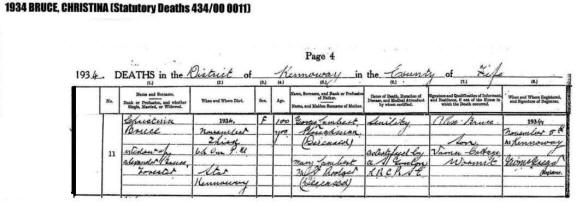 1934 BRUCE, CHRISTINA (Statutory Deaths 434/00 0011)
Page 4
1934. DEATHS in the District of Kennoway in the County of Fife
(1.) (2.) (3.) (4.) (5.) (6.) (7.) (8.)
No. Name and Surname. Rank or Profession, and whether Single, Married, or Widowed.
When and Where Died.
Sex.
Age.
Name, Surname, and Rank or Profession of Father. Name, and Maiden Surname of Mother.
Cause of Death, Duration of Disease, and Medical Attendant by whom certified.
Signature and Qualification of Informant, and Residence, if out of the House in which the Death occurred.
When and Where Registered, and Signature of Registrar.
11
Christina
Bruce
widow of
Alexander Bruce,
Forester
1934,
November
Third
Star
Kennoway
F
100
yrs
George Lambert
Ploughman
(Deceased)
Mary Lambert
(Deceased)
Senility
as certified by
Alex. Bruce
Son
Cottage
Wormit
1934,
November 5th
at Kennoway
Registrar.